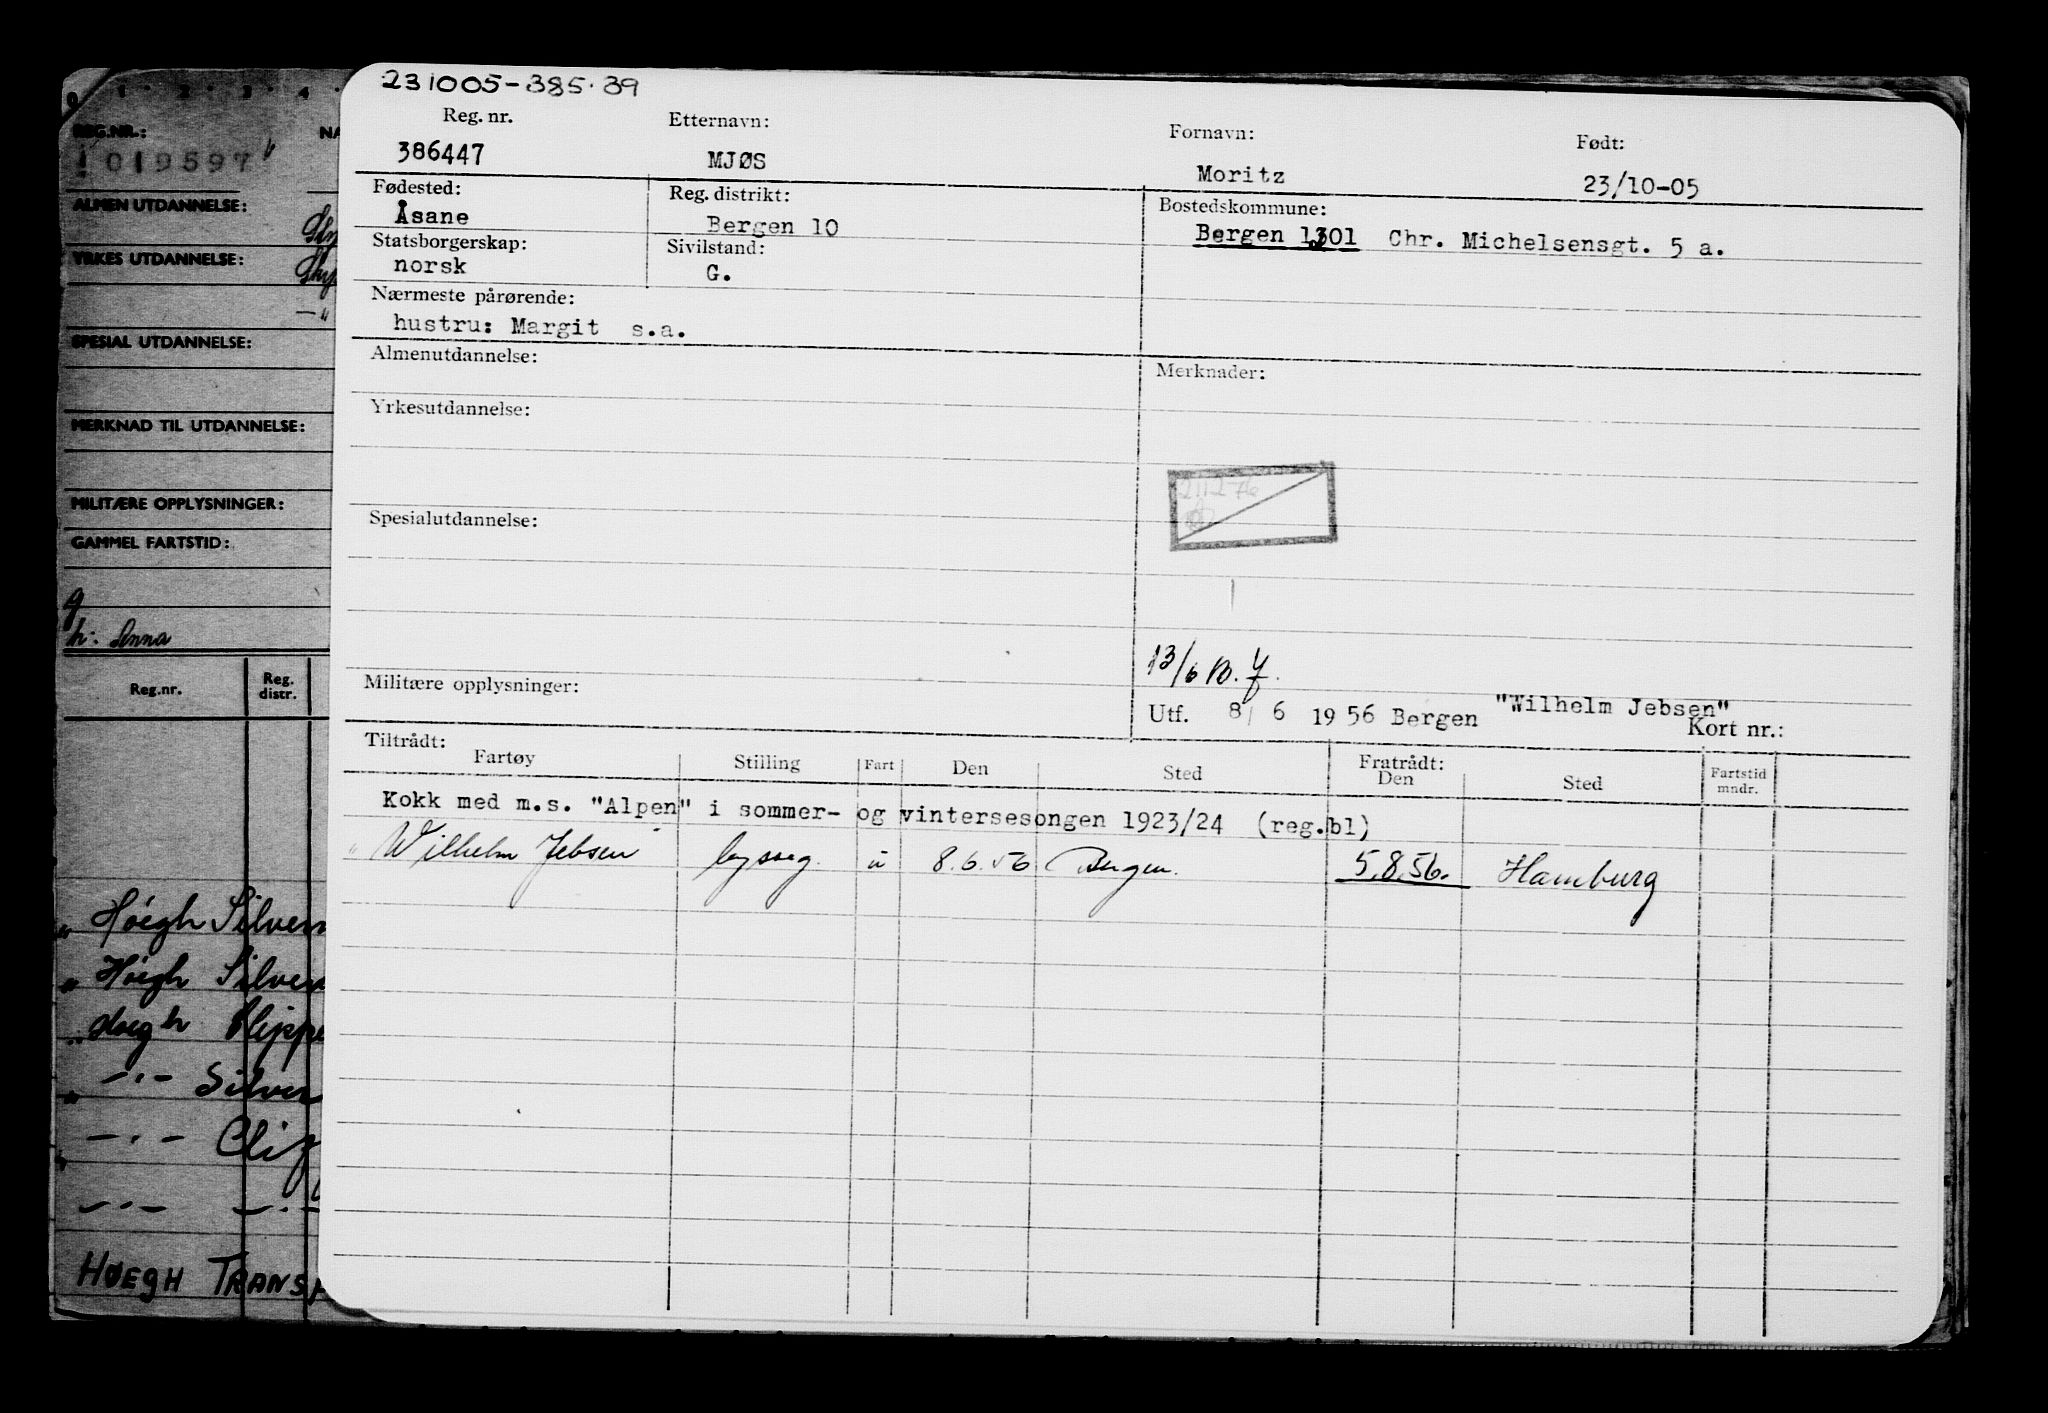 231005-385.39
Reg. nr. Etternavn: Fornavn: Født:
386447 MJØS Moritz 23/10-05
Fødested: Reg. distrikt: Bostedskommune:
Åsane Bergen 10 Bergen 1301 Chr. Michelsensgt. 5 a.
Statsborgerskap: Sivilstand:
norsk G.
Nærmeste pårørende:
hustru: Margit s.a.
Almenutdannelse: Merknader:
Yrkesutdannelse:
21276
Spesialutdannelse:
13/6
Militære opplysninger:
Utf. 8/6 1956 Bergen "Wilhelm Jebsen" Kort nr.:
Tiltrådt: Fratrådt:
Fartøy Stilling Fart Den Sted Den Sted Fartstid mndr.
Kokk med m.s. "Alpen" i sommer- og vintersesongen 1923/24 (reg.bl)
" Wilhelm Jebsen byssg. u 8.6.56 Bergen. 5.8.56. Hamburg
0 1 2 3 4
REG.NR.: NA
1019597
ALMEN UTDANNELSE:
YRKES UTDANNELSE:
SPESIAL UTDANNELSE:
MERKNAD TIL UTDANNELSE:
MILITÆRE OPPLYSNINGER:
GAMMEL FARTSTID:
g
h: Anna
Reg.nr. Reg. distr.
" Höegh Silver
" Höegh Silver
" Höegh Clippe
" -"- Silver
" -"- Clip
-"- -"-
HØEGH TRANSP